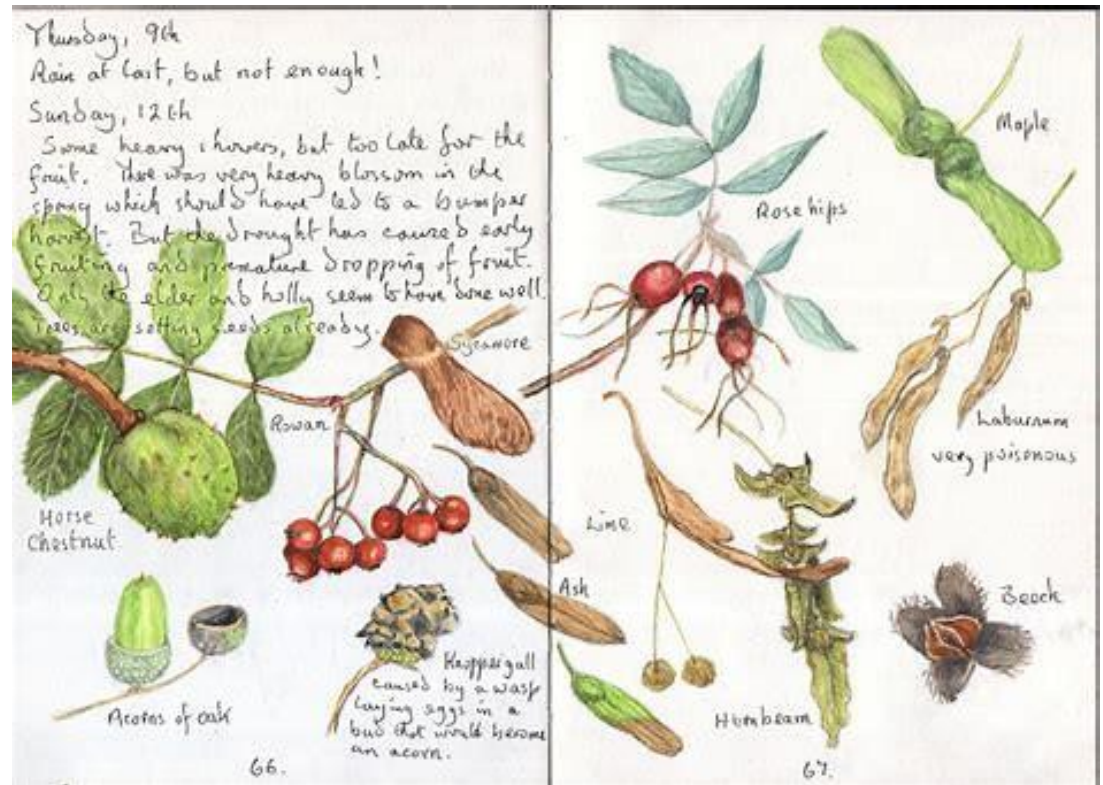 Thursday, 9th
Rain at last, but not enough!
Sunday, 12th
Some heavy showers, but too late for the
fruit. There was very heavy blossom in the
spring which should have led to a bumper
harvest. But the drought has caused early
fruiting and premature dropping of fruit.
Only the elder and holly seem to have done well.
Trees are setting seeds already.
Sycamore
Rowan
Horse
Chestnut
Acorns of oak
Knopper gall
caused by a wasp
laying eggs in a
bud that would become
an acorn.
66.
Maple
Rose hips
Laburnum
very poisonous
Lime
Ash
Beech
Hornbeam
67.